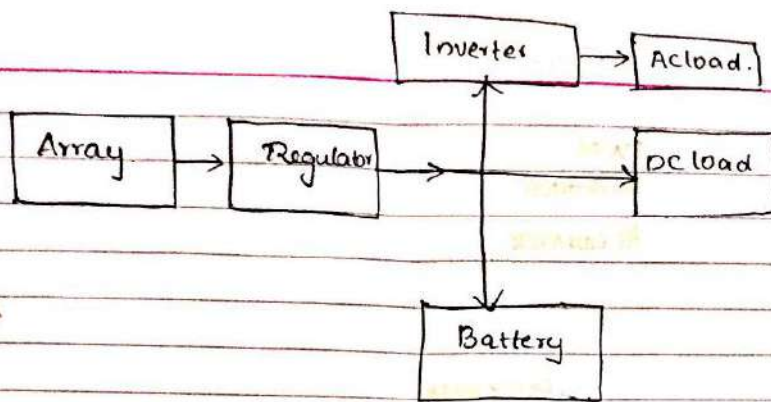 Inverter
Acload.
Array
Regulator
DC load
Battery